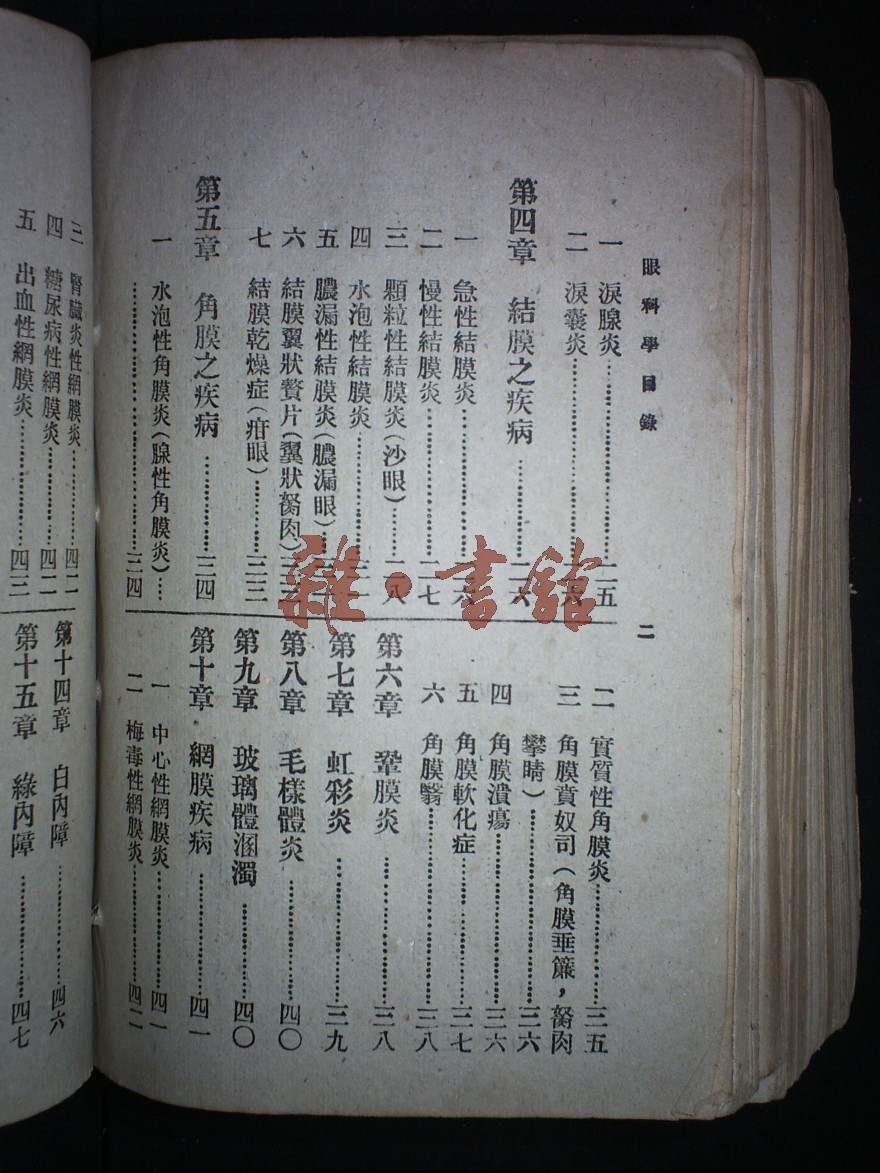 眼科學目錄
二
一 淚腺炎……二五
二 淚囊炎……二六
第四章 結膜之疾病……二六
一 急性結膜炎……二六
二 慢性結膜炎……二七
三 顆粒性結膜炎(沙眼)……二八
四 水泡性結膜炎……
五 膿漏性結膜炎(膿漏眼)……
六 結膜翼狀贅片(翼狀胬肉)
七 結膜乾燥症(疳眼)……三三
第五章 角膜之疾病……三四
一 水泡性角膜炎(腺性角膜炎)……
……三四
二 實質性角膜炎……三五
三 角膜賁奴司(角膜垂簾,胬肉
攀睛)……三六
四 角膜潰瘍……三六
五 角膜軟化症……三七
六 角膜翳……三八
第六章 鞏膜炎……三八
第七章 虹彩炎……三九
第八章 毛樣體炎……四〇
第九章 玻璃體溷濁……四〇
第十章 網膜疾病……四一
一 中心性網膜炎……四一
二 梅毒性網膜炎……四二
三 腎臟炎性網膜炎……四二
四 糖尿病性網膜炎……四二
五 出血性網膜炎……四三
第十四章 白內障……四六
第十五章 綠內障……四七
雜·書館